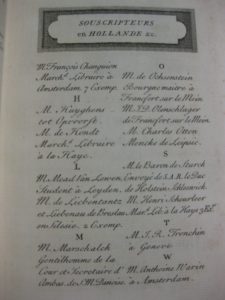 SOUSCRIPTEURS
en HOLLANDE &c.
M. François Changuion
March.d Libraire à
Amsterdam 7 Exemp.
H
M. Huyghens
tot Opeverst.
M. de Hondt
March.d Libraire
à la Haye.
L
M. Mead Van Lowen,
Student à Leyden.
M. de Liebentantz
et Liebenau de Breslau
en Silesie. 2 Exemp.
M
M. Marschalck
Gentilhomme de la
Cour et Secretaire d'
Ambas. de S.M. Danois.
O
M. de Ochsenstein
Bourgue maitre à
Francfort sur le Mein
M. J.D. Olenschlager
de Francfort sur le Mein.
M. Charles Otton
Mencke de Leipsic.
S
M. le Baron de Storck
Envoyé de S.A.R. le Duc
de Holstein Sleeswick
M. Henri Scheurleer
Mar. Lib. à la Haye
T
M. J.R. Tronchin
à Genève
W
M. Antoine Warin
à Amsterdam.